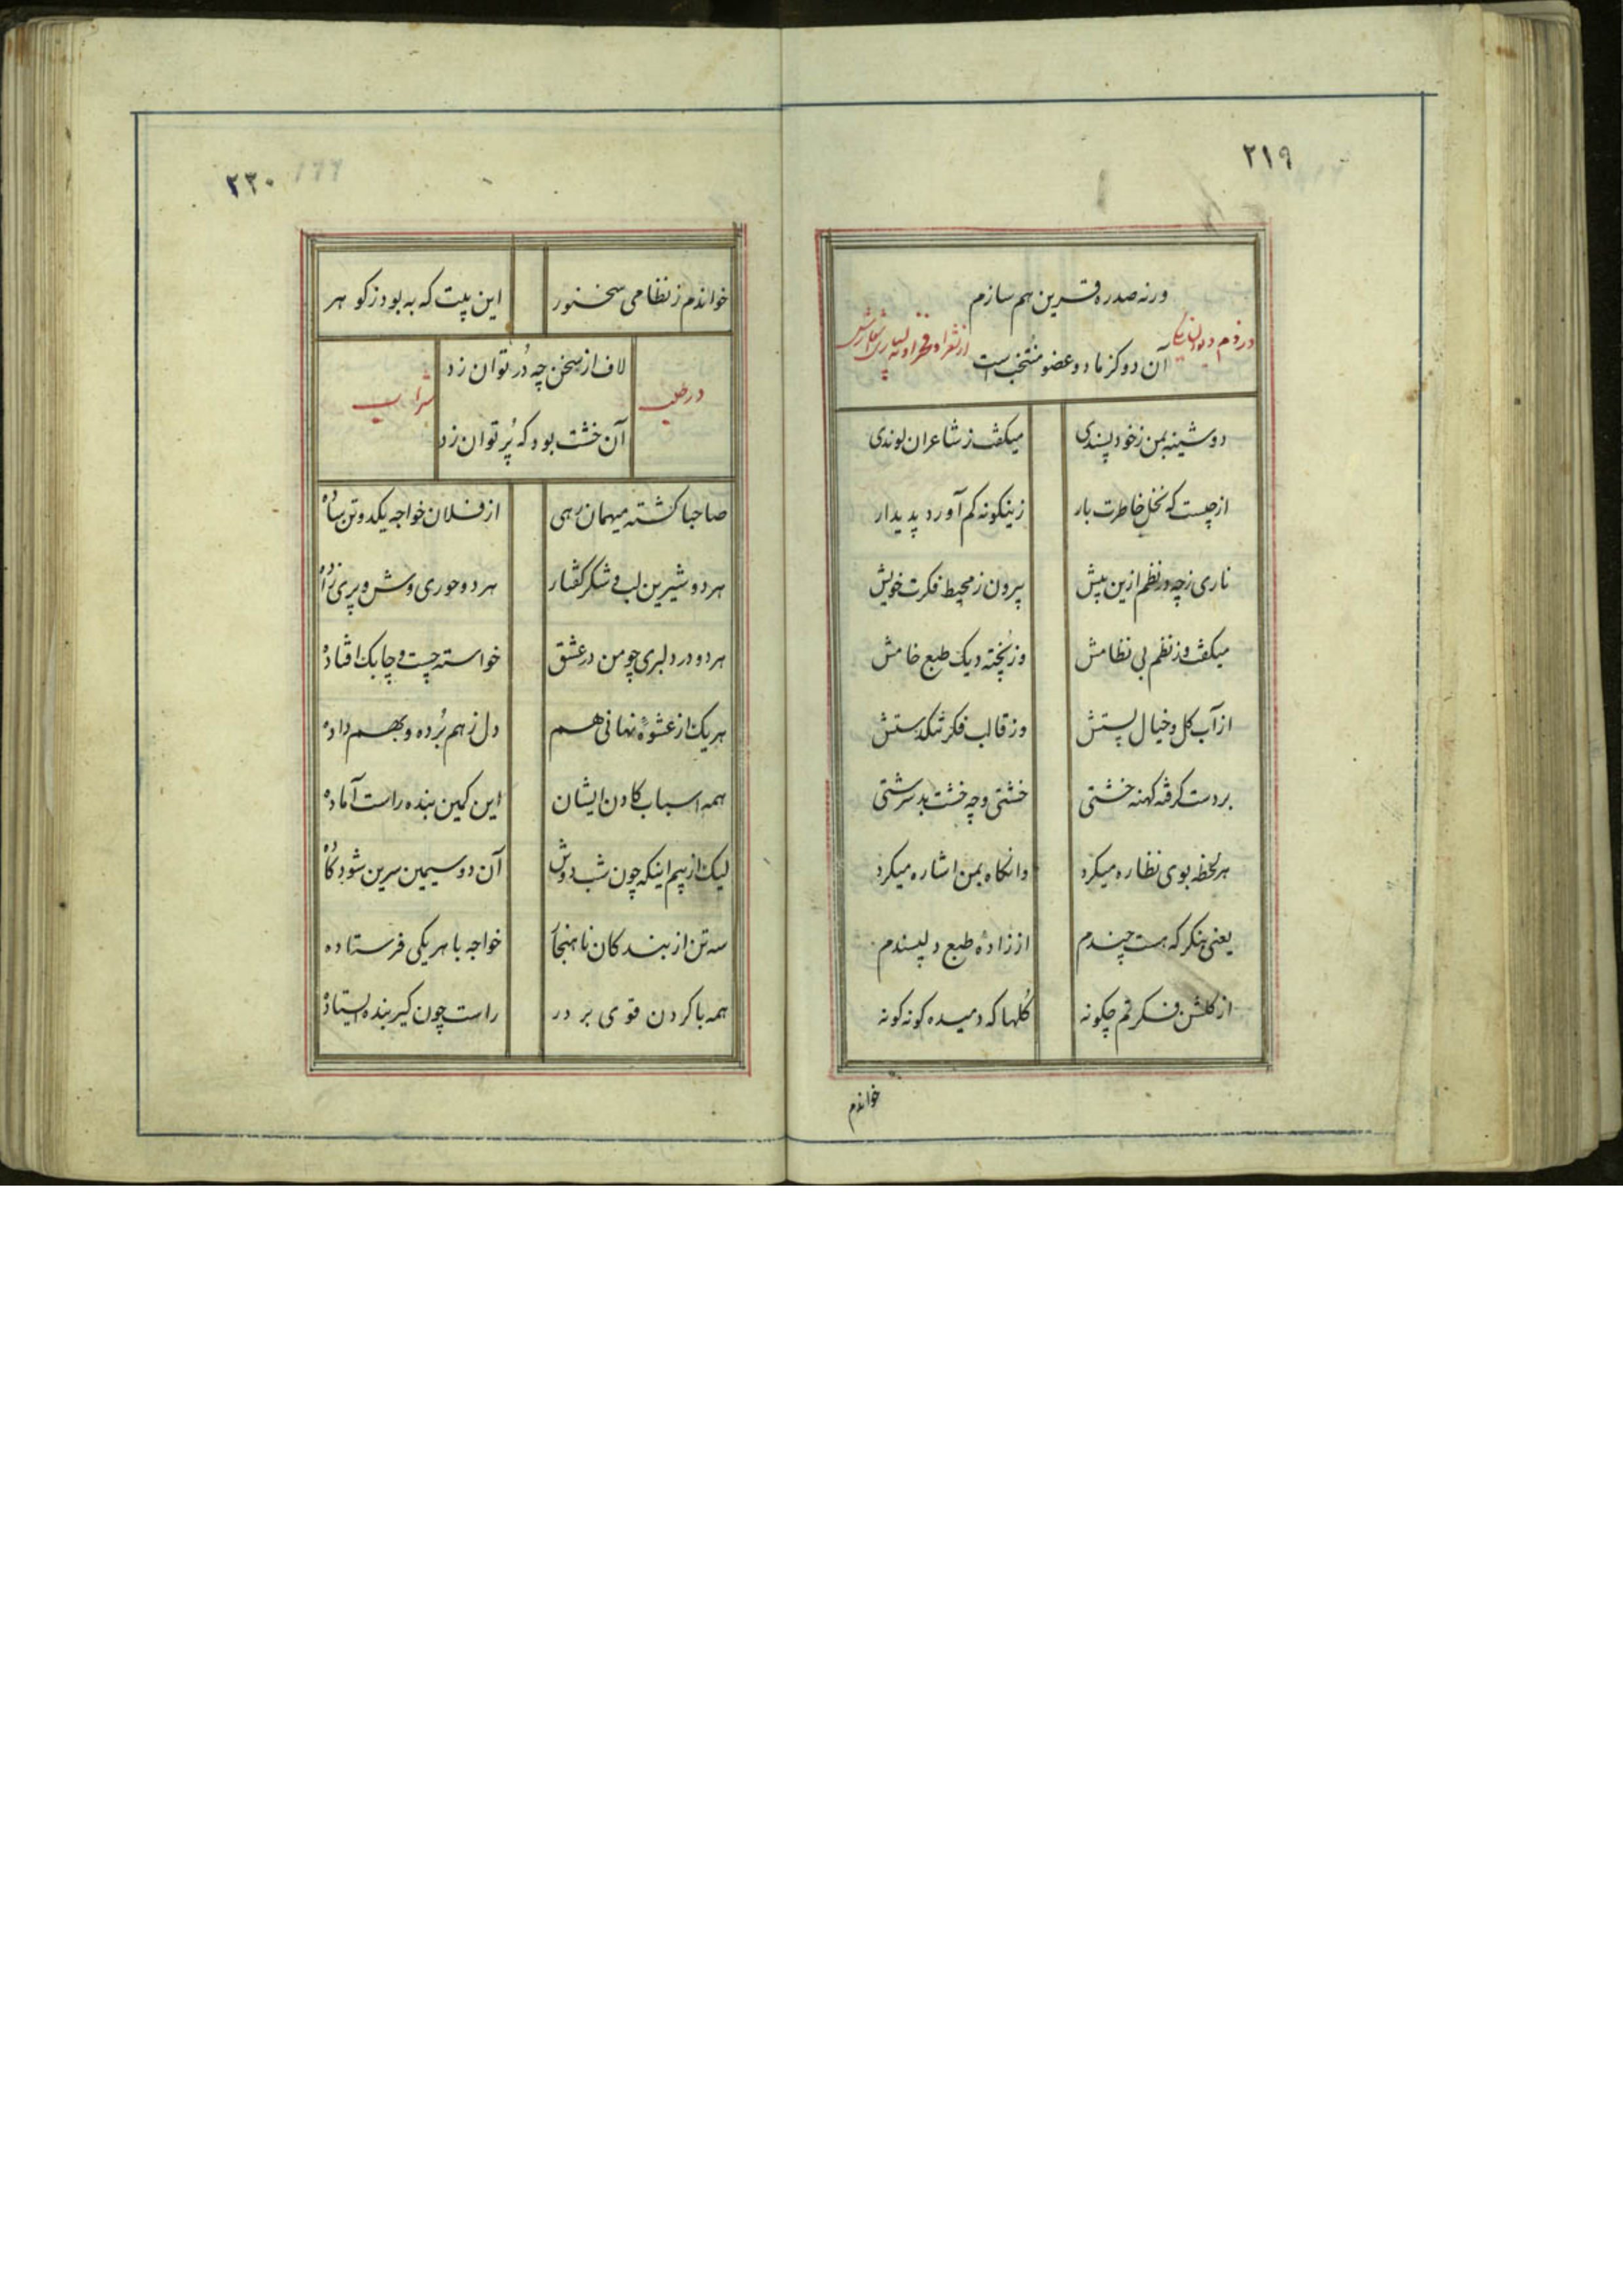 ۲۱۹
ورنه صدره قرین هم سازم
آن دو کز ما دو عضو منتخب است
دوشینه بمن زخود پسندی
میکفت ز شاعران لوندی
از چیست که نخل خاطرت بار
زینکونه کم آورد پدیدار
ناری زچه در نظم ازین پیش
بیرون ز محیط فکرت خویش
میکفت وز نظم بی نظامش
وز پخته دیک طبع خامش
از آب کل و خیال پستش
وز قالب فکر
بر دست کرفته کهنه خشتی
خشتی و چه خشت بد سرشتی
هر لحظه بوی نظاره میکرد
وانکاه بمن اشاره میکرد
یعنی بنکر که هست چندم
از زادهٔ طبع دلپسندم
از کلشن فکرتم چکونه
کُلها که دمیده کونه کونه
خواندم
۲۲۰
خواندم ز نظامی سخنور
این بیت که به بود ز کوهر
لاف از سخن چه دُر توان زد
در طلب
شراب
آن خشت بود که پُر توان زد
صاحبا کشته میهمان رهی
از فلان خواجه یکدو تن ساده
هر دو شیرین لب و شکر کفتار
هر دو حوری وش و پری زاده
هر دو در دلبری چو من در عشق
خواسته چست و چابک افتاده
هر یک از عشوهٔ نهانی هم
دل ز هم بُرده و بهم داده
همه اسباب کادن ایشان
این کمین بنده راست آماده
لیک از بیم اینکه چون شب دوش
آن دو سیمین سرین شود کاده
سه تن از بندکان ناهنجار
خواجه با هر یکی فرستاده
همه با کردن قوی بر در
راست چون کیر بنده ایستاده